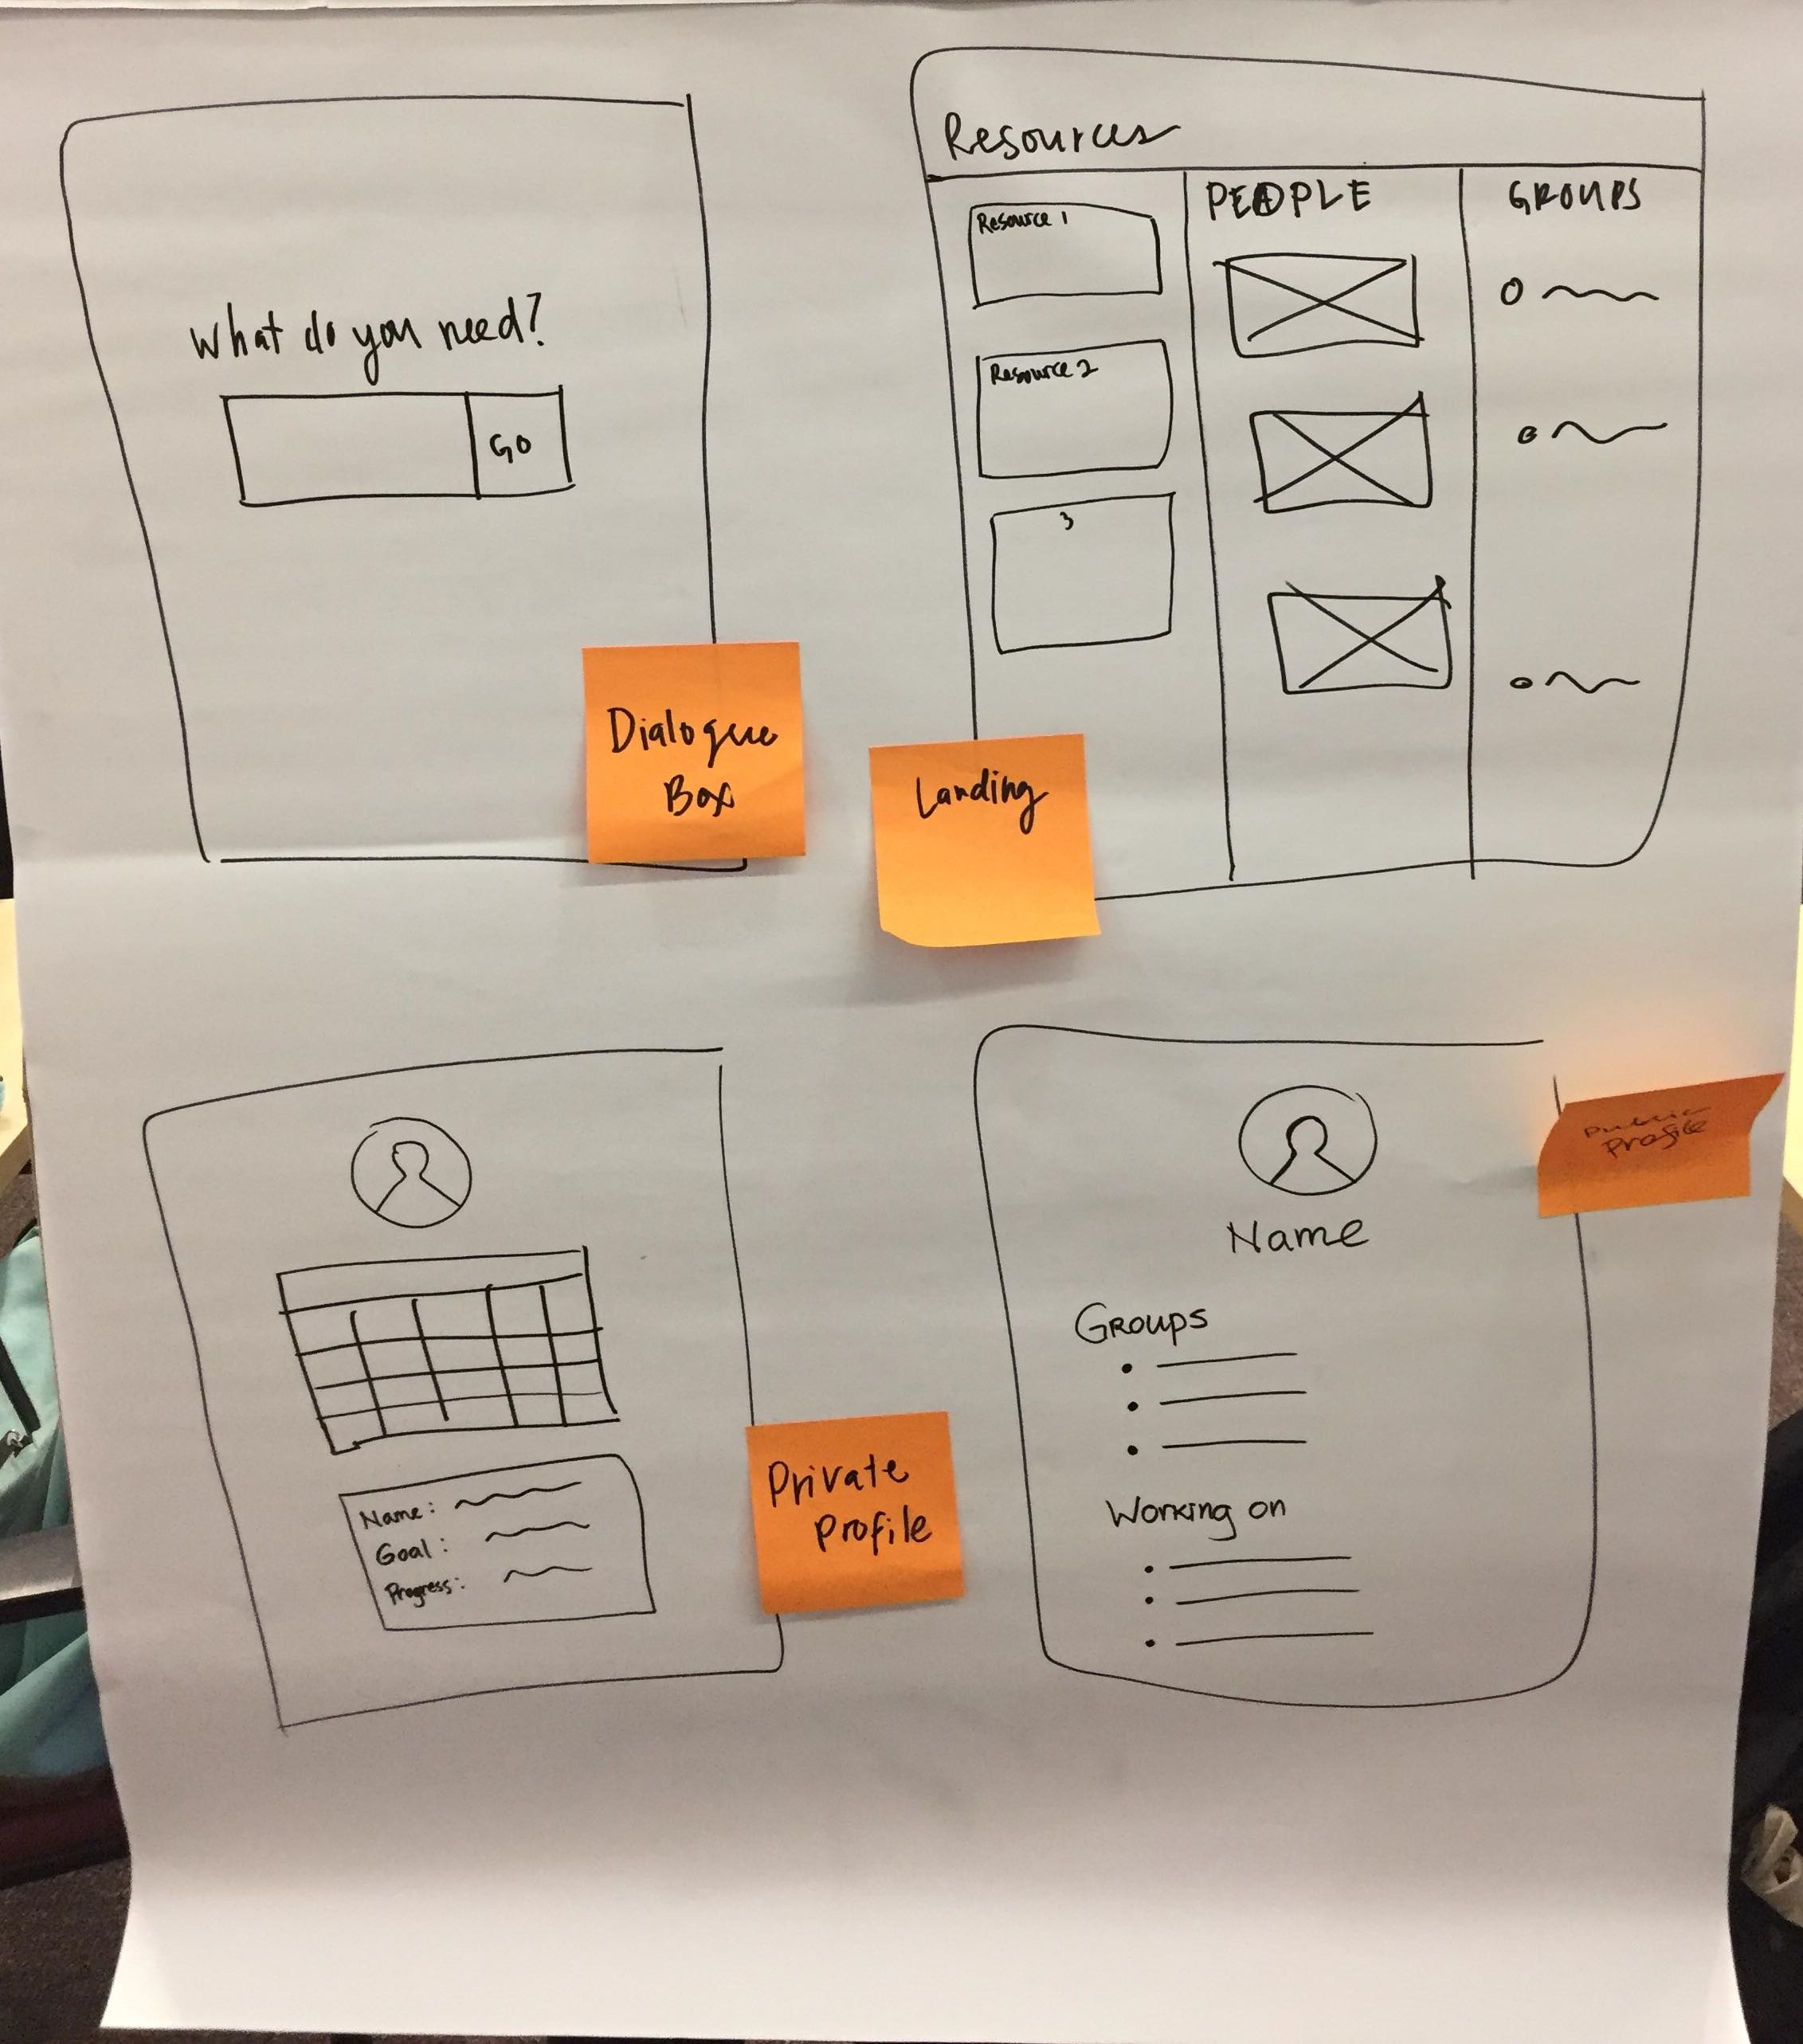 What do you need?
GO
Dialogue
Box
Resources
Resource 1
Resource 2
3
PEOPLE
GROUPS
Landing
Name:
Goal:
Progress:
Private
Profile
Name
Groups
Working on
Public
Profile